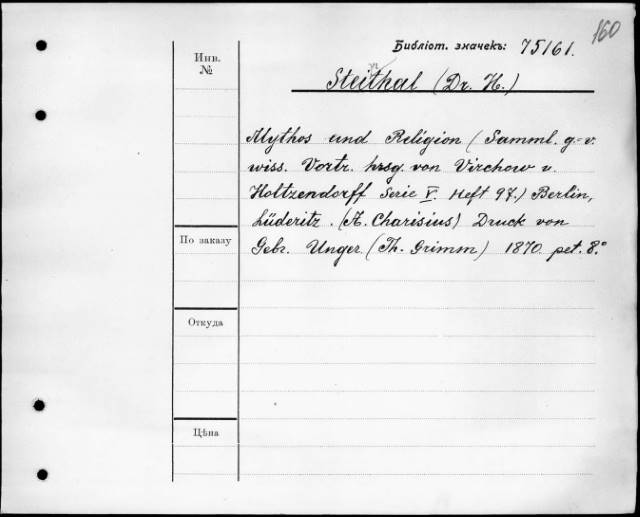 160
Библіот. значекъ: 75161.
Инв.
№
Steinthal (Dr. H.)
Mythos und Religion (Samml. g.-v.
wiss. Vortr. hrsg. von Virchow u.
Holtzendorff Serie V. Heft 97.) Berlin,
Lüderitz. (A. Charisius) Druck von
По заказу
Gebr. Unger. (Th. Grimm) 1870. pet. 8.°
Откуда
Цѣна